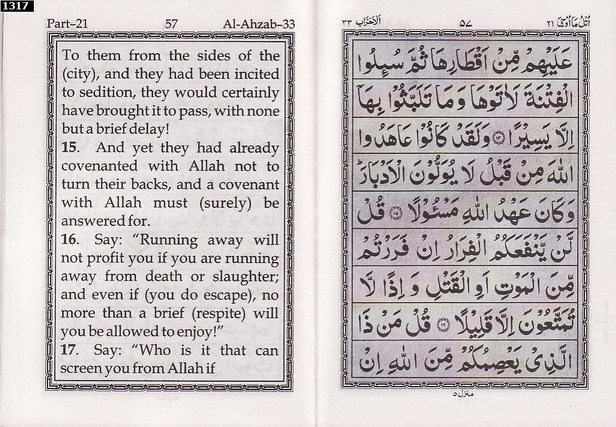 1317
Part–21 57 Al-Ahzab–33
To them from the sides of the
(city), and they had been incited
to sedition, they would certainly
have brought it to pass, with none
but a brief delay!
15. And yet they had already
covenanted with Allah not to
turn their backs, and a covenant
with Allah must (surely) be
answered for.
16. Say: “Running away will
not profit you if you are running
away from death or slaughter;
and even if (you do escape), no
more than a brief (respite) will
you be allowed to enjoy!”
17. Say: “Who is it that can
screen you from Allah if
اُتْلُ مَآ اُوْحِیَ ۲۱ ۵۷ اَلْاَحْزَاب ۳۳
عَلَيْهِمْ مِّنْ اَقْطَارِهَا ثُمَّ سُىِٕلُوا
الْفِتْنَةَ لَاٰتَوْهَا وَمَا تَلَبَّثُوْا بِهَاۤ
اِلَّا يَسِيْرًا ۝۱۴ وَلَقَدْ كَانُوْا عَاهَدُوا
اللّٰهَ مِنْ قَبْلُ لَا يُوَلُّوْنَ الْاَدْبَارَ ؕ
وَكَانَ عَهْدُ اللّٰهِ مَسْـُٔوْلًا ۝۱۵ قُلْ
لَّنْ يَّنْفَعَكُمُ الْفِرَارُ اِنْ فَرَرْتُمْ
مِّنَ الْمَوْتِ اَوِ الْقَتْلِ وَ اِذًا لَّا
تُمَتَّعُوْنَ اِلَّا قَلِيْلًا ۝۱۶ قُلْ مَنْ ذَا
الَّذِيْ يَعْصِمُكُمْ مِّنَ اللّٰهِ اِنْ
منزل ۵